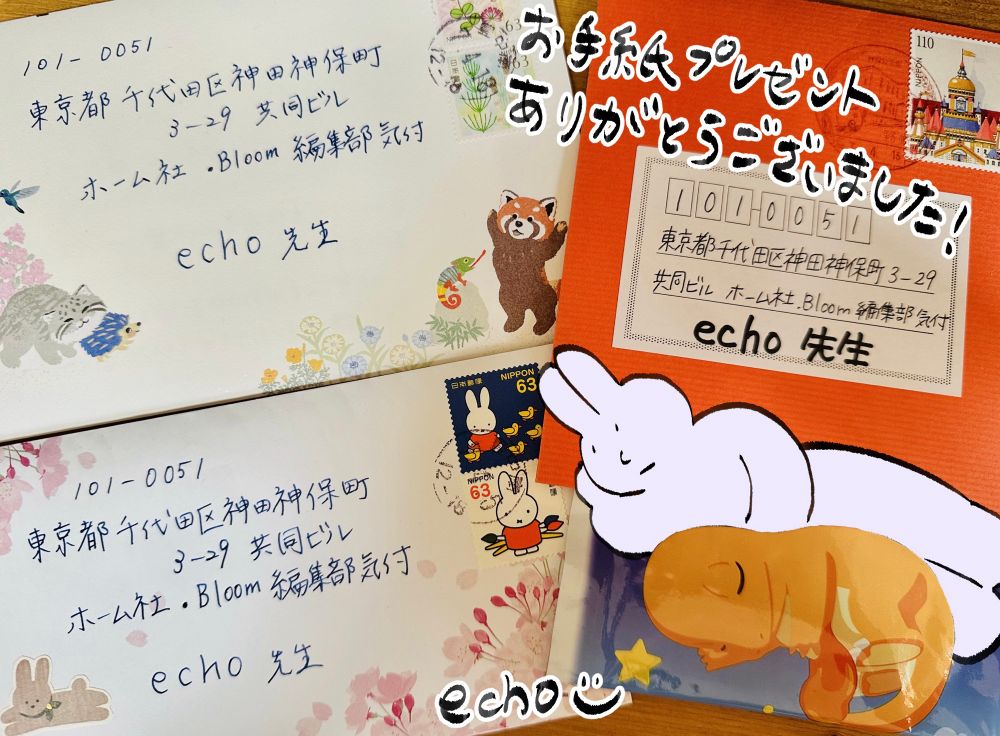 101-0051
東京都千代田区神田神保町
3-29 共同ビル
ホーム社・Bloom編集部気付
echo 先生
63
お手紙プレゼント
ありがとうございました!
110
NIPPON
1010051
東京都千代田区神田神保町3-29
共同ビル ホーム社.Bloom編集部気付
echo 先生
101-0051
東京都千代田区神田神保町
3-29 共同ビル
ホーム社・Bloom編集部気付
echo 先生
日本郵便 NIPPON
63
NIPPON
63
echo